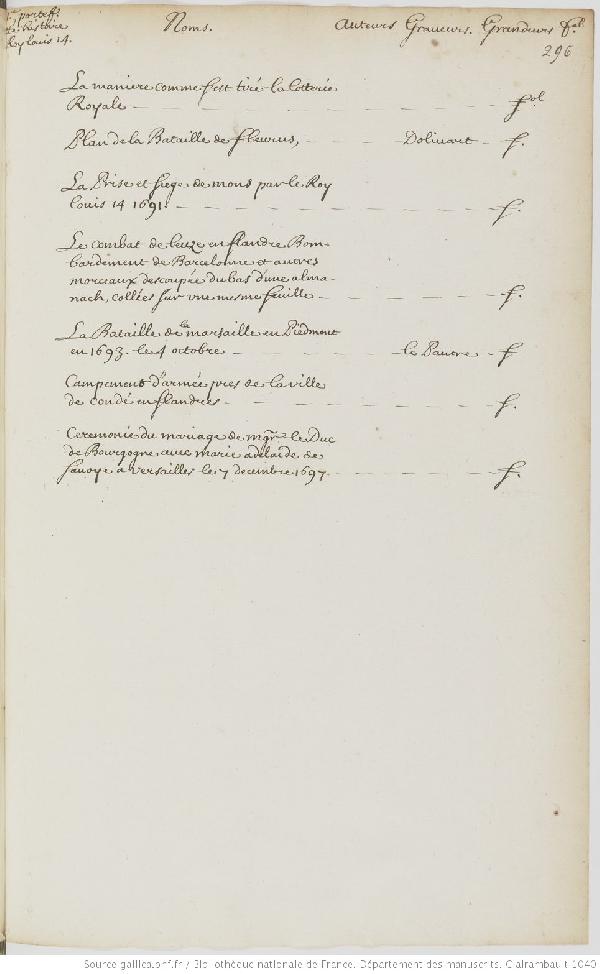 portef.
de l'histoire
Roy louis 14.
Noms. Auteurs Graveurs. Grandeurs f.el
296
La maniere comme s'est tiré la lotterie
Royale — — — — — — — fol
Plan de la Bataille de fleurus, — — — Dolivart — f.
La Prise et siege de mons par le Roy
louis 14 1691. — — — — — — f.
Le combat de leuze en flandre Bom-
bardement de Barcelonne et autres
morceaux descoupée du bas d'une alma-
nach, collées sur une mesme feuille — — — — f.
La Bataille de la marsaille en Piedmont
en 1693. le 4 octobre — — — — le Pautre — f
Campement d'armée pres de la ville
de condé en flandres — — — — — f.
Ceremonie du mariage de mgr. le Duc
de Bourgogne avec marie adelaide de
savoye a versailles le 7 decembre 1697. — — — — f.
Source gallica.bnf.fr / Bibliothèque nationale de France. Département des manuscrits. Clairambault 1040